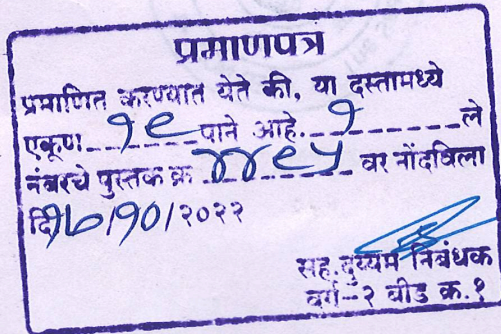 प्रमाणपत्र
प्रमाणित करण्यात येते की, या दस्तामध्ये
एकूण १९ पाने आहे. १ ले
नंबरचे पुस्तक क्र ४४९५ वर नोंदविला
दि १७/१०/२०२२
सह.दुय्यम निबंधक
वर्ग-२ बीड क्र.१